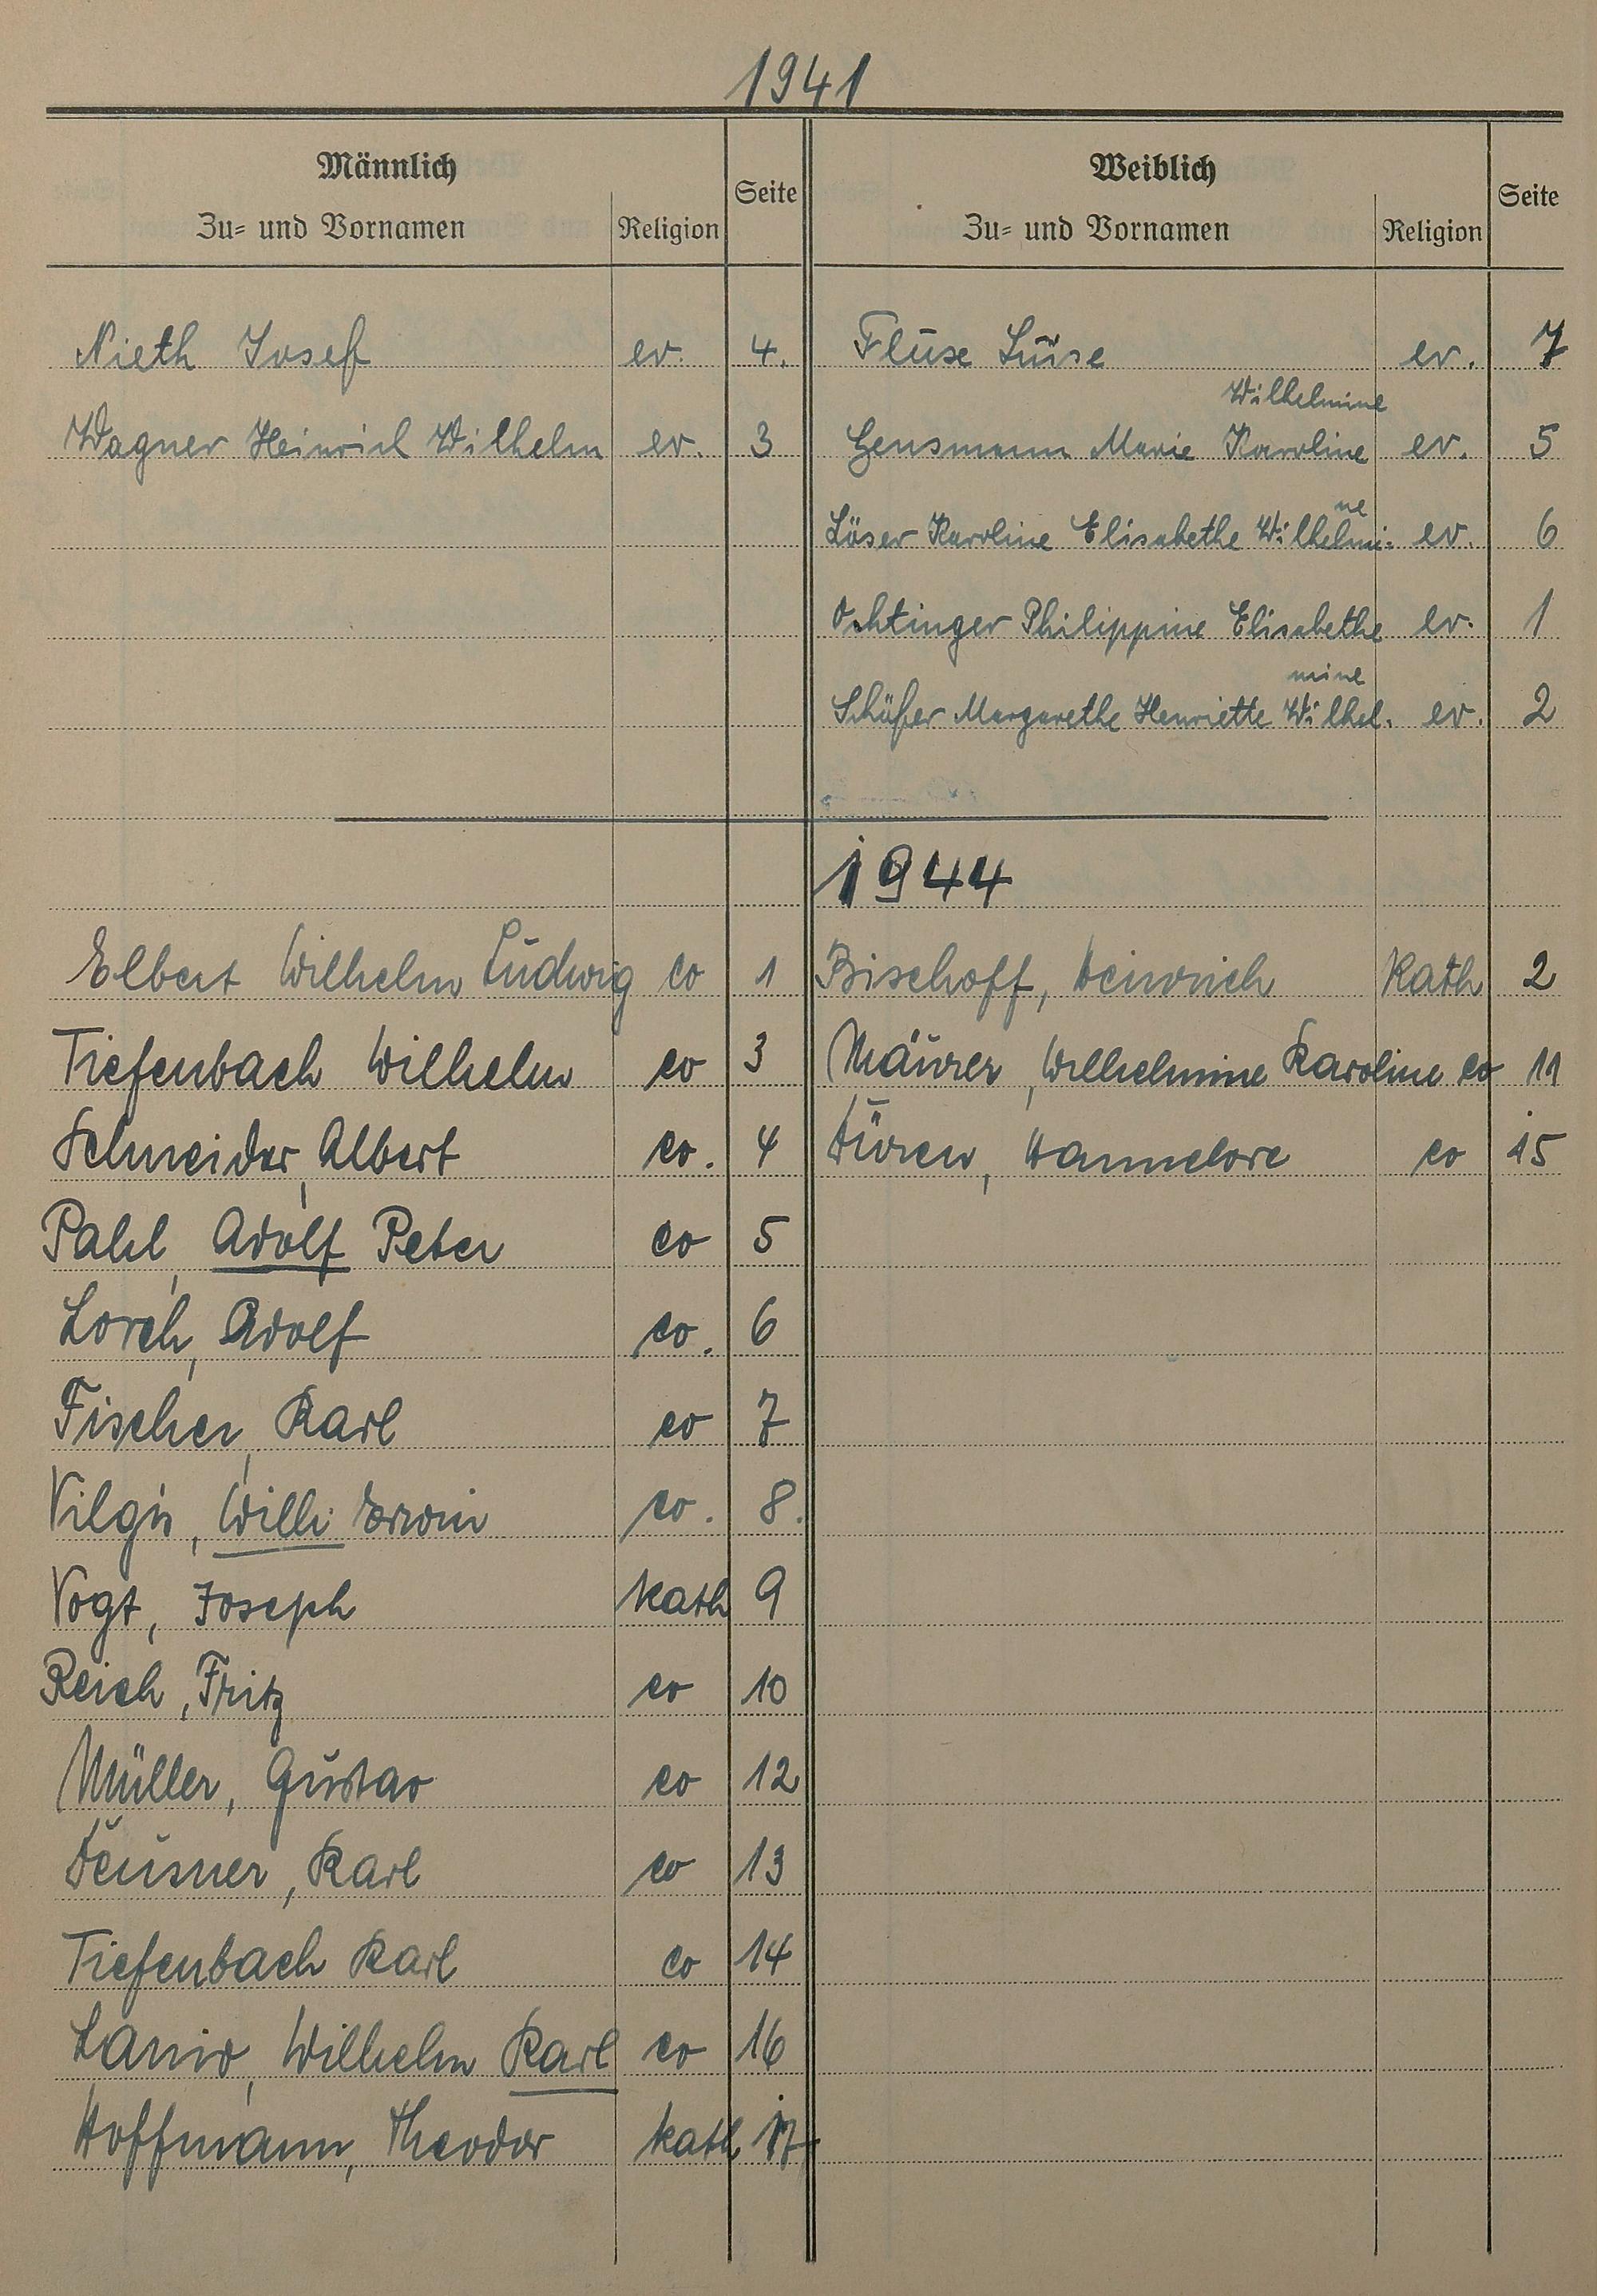 1941
Männlich
Weiblich
Seite
Seite
Zu- und Vornamen
Religion
Zu- und Vornamen
Religion
Nieth Josef ev. 4. Fluse Luise ev. 7
Wilhelmine
Wagner Heinrich Wilhelm ev. 3 Gensmann Marie Karoline ev. 5
ne
Löser Karoline Elisabethe Wilhelmi- ev. 6
Ochtinger Philippine Elisabethe ev. 1
mine
Schäfer Margarethe Henriette Wilhel. ev. 2
1944
Elbert Wilhelm Ludwig ev 1 Bischoff, Heinrich Kath 2
Tiefenbach Wilhelm ev 3 Mäurer, Wilhelmine Karoline ev 11
Schneider, Albert ev. 4 Düren, Hannelore ev 15
Pahl, Adolf Peter ev 5
Lorch, Adolf ev. 6
Fischer, Karl ev 7
Vilgis, Willi Erwin ev. 8.
Vogt, Joseph Kath 9
Reich, Fritz ev 10
Müller, Gustav ev 12
Deusner, Karl ev 13
Tiefenbach Karl ev 14
Lanio, Wilhelm Karl ev 16
Hoffmann, Theodor kath 17